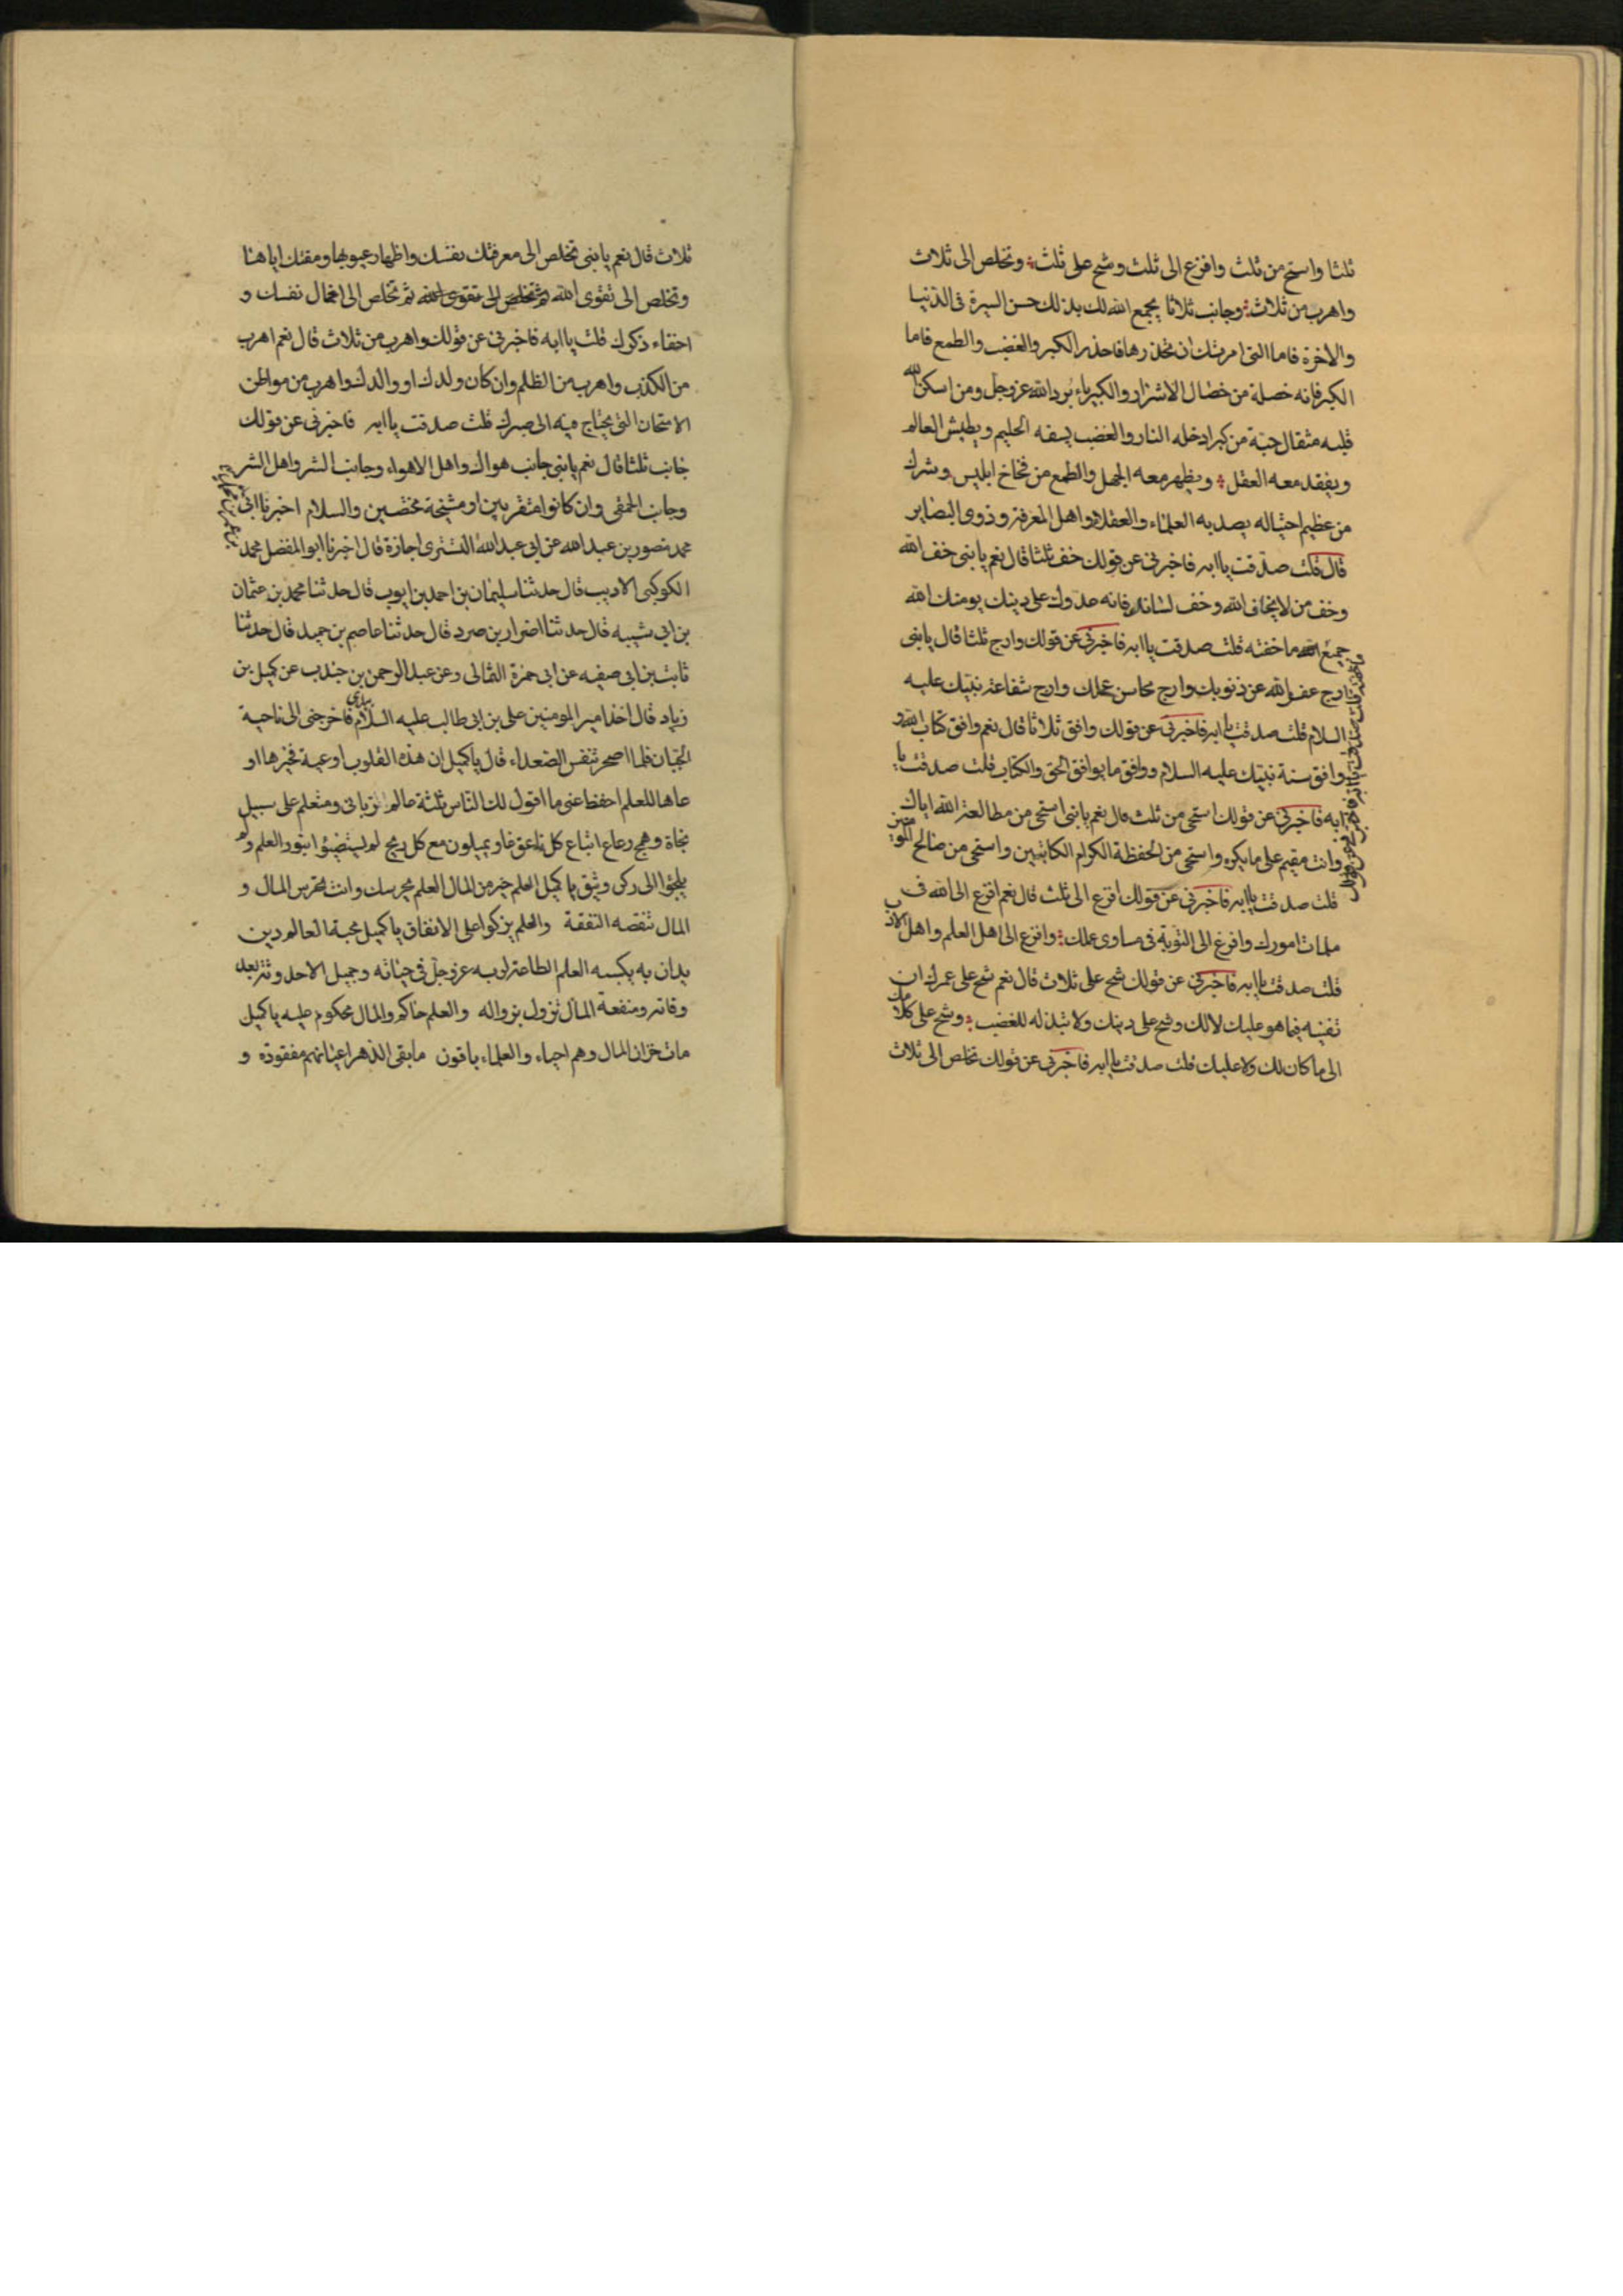 ثلثا واستحى من ثلث وافزع الى ثلث وشح على ثلث وتخلص الى ثلاث
واهرب من ثلاث وجانب ثلاثا يجمع الله لك بذلك حسن السيرة فى الدنيا
والاخرة فاما التى امرتك ان تحذرها فاحذر الكبر والغضب والطمع فاما
الكبر فانه خصلة من خصال الاشرار والكبرياء برد الله عز وجل ومن اسكن الله
قلبه مثقال حبة من كبر ادخله النار والغضب يسفه الحليم ويطيش العالم
ويفقد معه العقل ويظهر معه الجهل والطمع من فخاخ ابليس وشرك
من عظيم احتياله يصد به العلماء والعقلاء واهل المعرفة وذوى البصاير
قال قلت صدقت يا ابه فاخبرنى عن قولك خف ثلثا قال نعم يا بنى خف الله
وخف من لا يخاف الله وخف لسانك فانه عدوك على دينك يومنك الله
جميع ما خفته قلت صدقت يا ابه فاخبرنى عن قولك وارج ثلثا قال يا بنى
ارج عفو الله عن ذنوبك وارج محاسن عملك وارج شفاعة نبيك عليه
السلام قلت صدقت يا ابه فاخبرنى عن قولك وافق ثلاثا قال نعم وافق كتاب الله و
وافق سنة نبيك عليه السلام ووافق ما يوافق الحق والكتاب قلت صدقت يا
ابه فاخبرنى عن قولك استحى من ثلث قال نعم يا بنى استحى من مطالعة الله اياك
وانت مقيم على ما يكره واستحى من الحفظة الكرام الكاتبين واستحى من صالح المومنين
قلت صدقت يا ابه فاخبرنى عن قولك افزع الى ثلث قال نعم افزع الى الله فى
ملمات امورك وافزع الى التوبة فى مساوى عملك وافزع الى اهل العلم واهل الادب
قلت صدقت يا ابه فاخبرنى عن قولك شح على ثلاث قال نعم شح على عمرك ان
تفنيه فيما هو عليك لا لك وشح على دينك ولا تبذله للغضب وشح على كلامك
الى ما كان لك ولا عليك قلت صدقت يا ابه فاخبرنى عن قولك تخلص الى ثلاث
ثلاث قال نعم يا بنى تخلص الى معرفتك نفسك واظهار عيوبها ومقتك اياها
وتخلص الى تقوى الله ثم تخلص الى تقوى الله ثم تخلص الى اخمال نفسك و
اخفاء ذكرك قلت يا ابه فاخبرنى عن قولك واهرب من ثلاث قال نعم اهرب
من الكذب واهرب من الظلم وان كان ولدك او والدك واهرب من مواطن
الامتحان التى يحتاج فيه الى صبرك قلت صدقت يا ابه فاخبرنى عن قولك
جانب ثلثا قال نعم يا بنى جانب هواك واهل الاهواء وجانب الشر واهل الشر
وجانب الحمقى وان كانوا متقربين او مشيخة مختصين والسلام اخبرنا ابى
محمد منصور بن عبد الله عن ابى عبد الله التسترى اجازة قال اخبرنا ابو المفضل محمد
الكوكبى الاديب قال حدثنا سليمان بن احمد بن ايوب قال حدثنا محمد بن عثمان
بن ابى شيبه قال حدثنا ضرار بن صرد قال حدثنا عاصم بن حميد قال حدثنا
ثابت بن ابى صفيه عن ابى حمزة الثمالى وعن عبد الرحمن بن جندب عن كميل بن
زياد قال اخذ امير المومنين على بن ابى طالب عليه السلام بيدى فاخرجنى الى ناحية
الجبان فلما اصحر تنفس الصعداء قال يا كميل ان هذه القلوب اوعية فخيرها او
عاها للعلم احفظ عنى ما اقول لك الناس ثلثة عالم ربانى ومتعلم على سبيل
نجاة وهمج رعاع اتباع كل ناعق غاو يميلون مع كل ريح لم يستضيئوا بنور العلم ولم
يلجئوا الى ركن وثيق يا كميل العلم خير من المال العلم يحرسك وانت تحرس المال و
المال تنقصه النفقة والعلم يزكوا على الانفاق يا كميل محبة العالم دين
يدان به يكسبه العلم الطاعة لربه عز وجل فى حياته وجميل الاحدوثة بعد
وفاته ومنفعة المال تزول بزواله والعلم حاكم والمال محكوم عليه يا كميل
مات خزان المال وهم احياء والعلماء باقون ما بقى الدهر اعيانهم مفقودة و